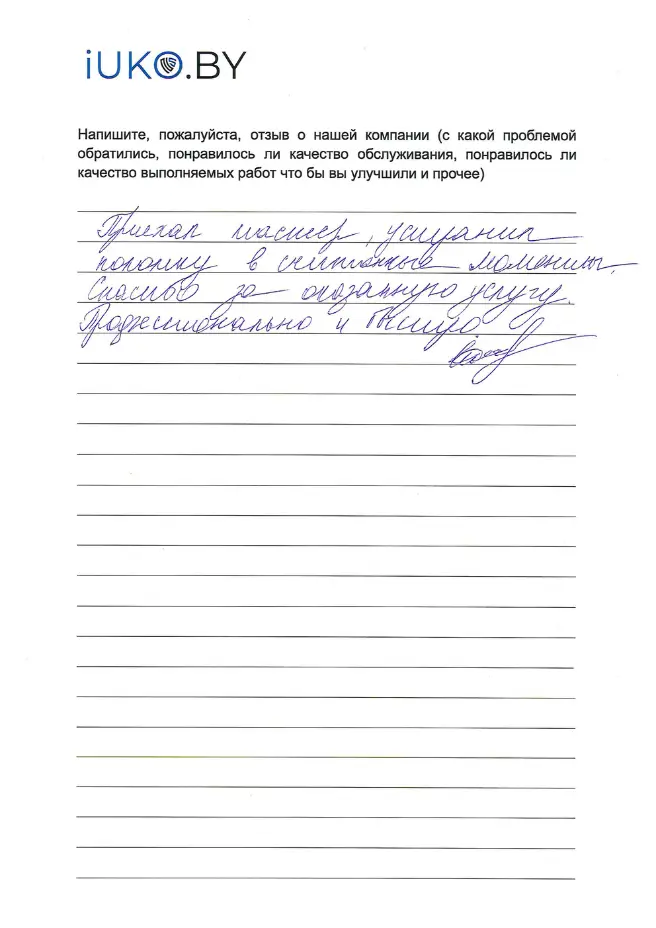 iUKO.BY
Напишите, пожалуйста, отзыв о нашей компании (с какой проблемой
обратились, понравилось ли качество обслуживания, понравилось ли
качество выполняемых работ что бы вы улучшили и прочее)
Приехал мастер, устранил
поломку в считанные моменты.
Спасибо за оказанную услугу.
Профессионально и быстро